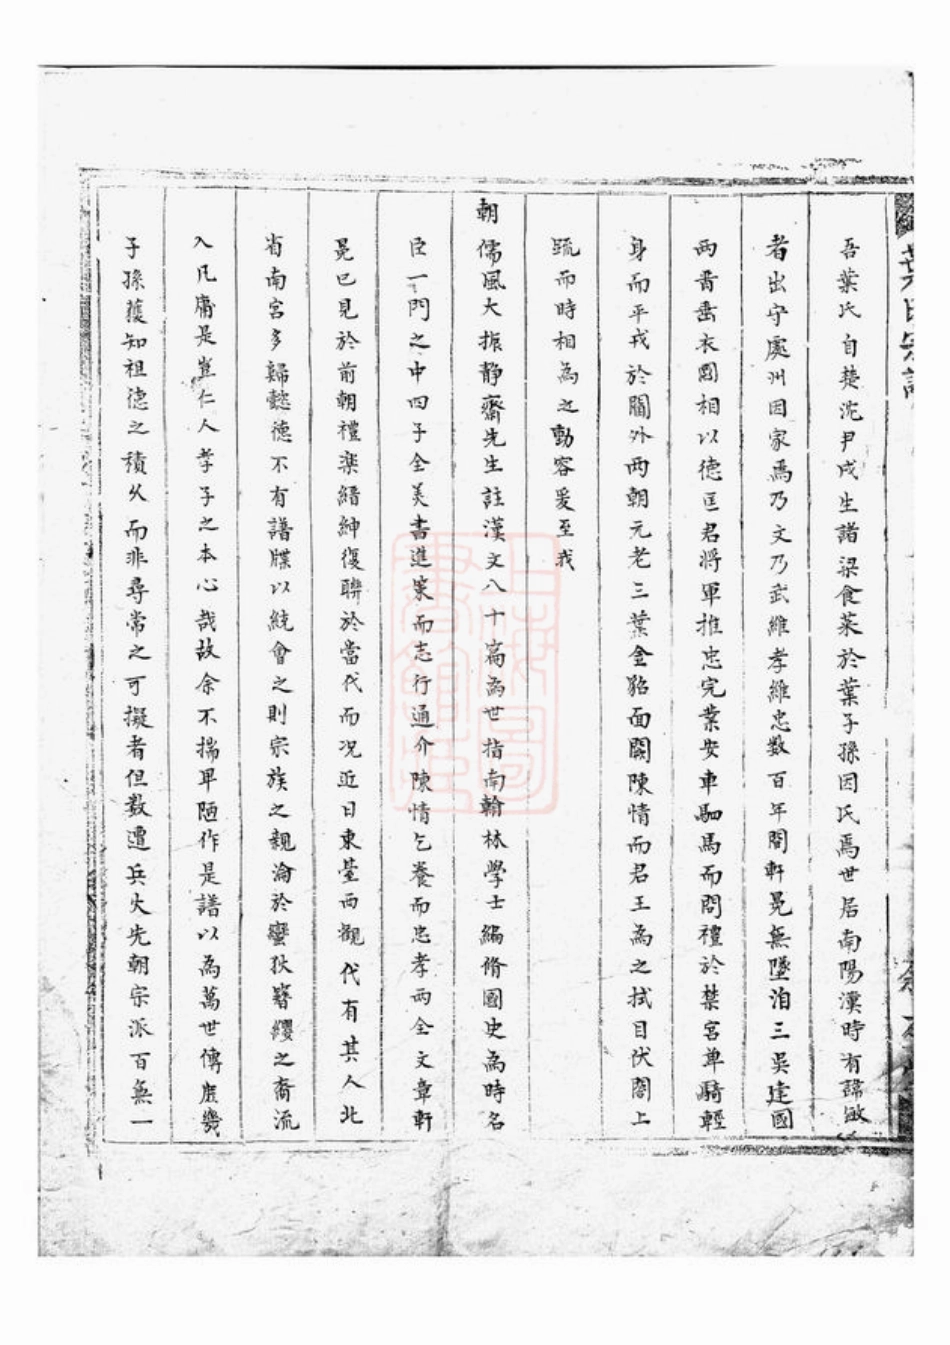 葉氏宗譜
吾葉氏自楚沈尹戌生諸梁食菜於葉子孫因氏焉世居南陽漢時有諱
者出守處州因家焉乃文乃武維孝維忠数百年間軒冕無墜洎三吳建國
兩晋垂衣國相以德匡君將軍推忠完業安車駟馬而問禮於禁宮单騎輕
身而平戎於閫外两朝元老三葉金貂面闕陳情而君王為之拭目伏閤上
疏而時相為之動容爰至我
朝儒風大振静齋先生註漢文八十篇為世指南翰林學士編脩國史為時名
臣一門之中四子全美書進策而志行通介陳情乞養而忠孝两全文章軒
冕已見於前朝禮楽縉紳復聮於當代而况近日東臺西觀代有其人北
省南宮多歸懿德不有譜牒以統會之則宗族之親淪於蠻狄簪纓之裔流
入凡庸是豈仁人孝子之本心哉故余不揣卑陋作是譜以為萬世傳庶幾
子孫獲知祖德之積久而非尋常之可擬者但数遭兵火先朝宗派百無一